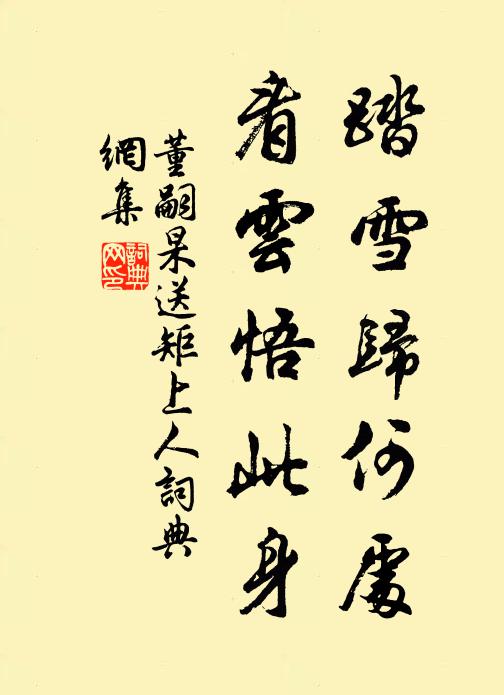 踏雪歸何處
看雲悟此身
董嗣杲送矩上人詞典
網集
詞典网印